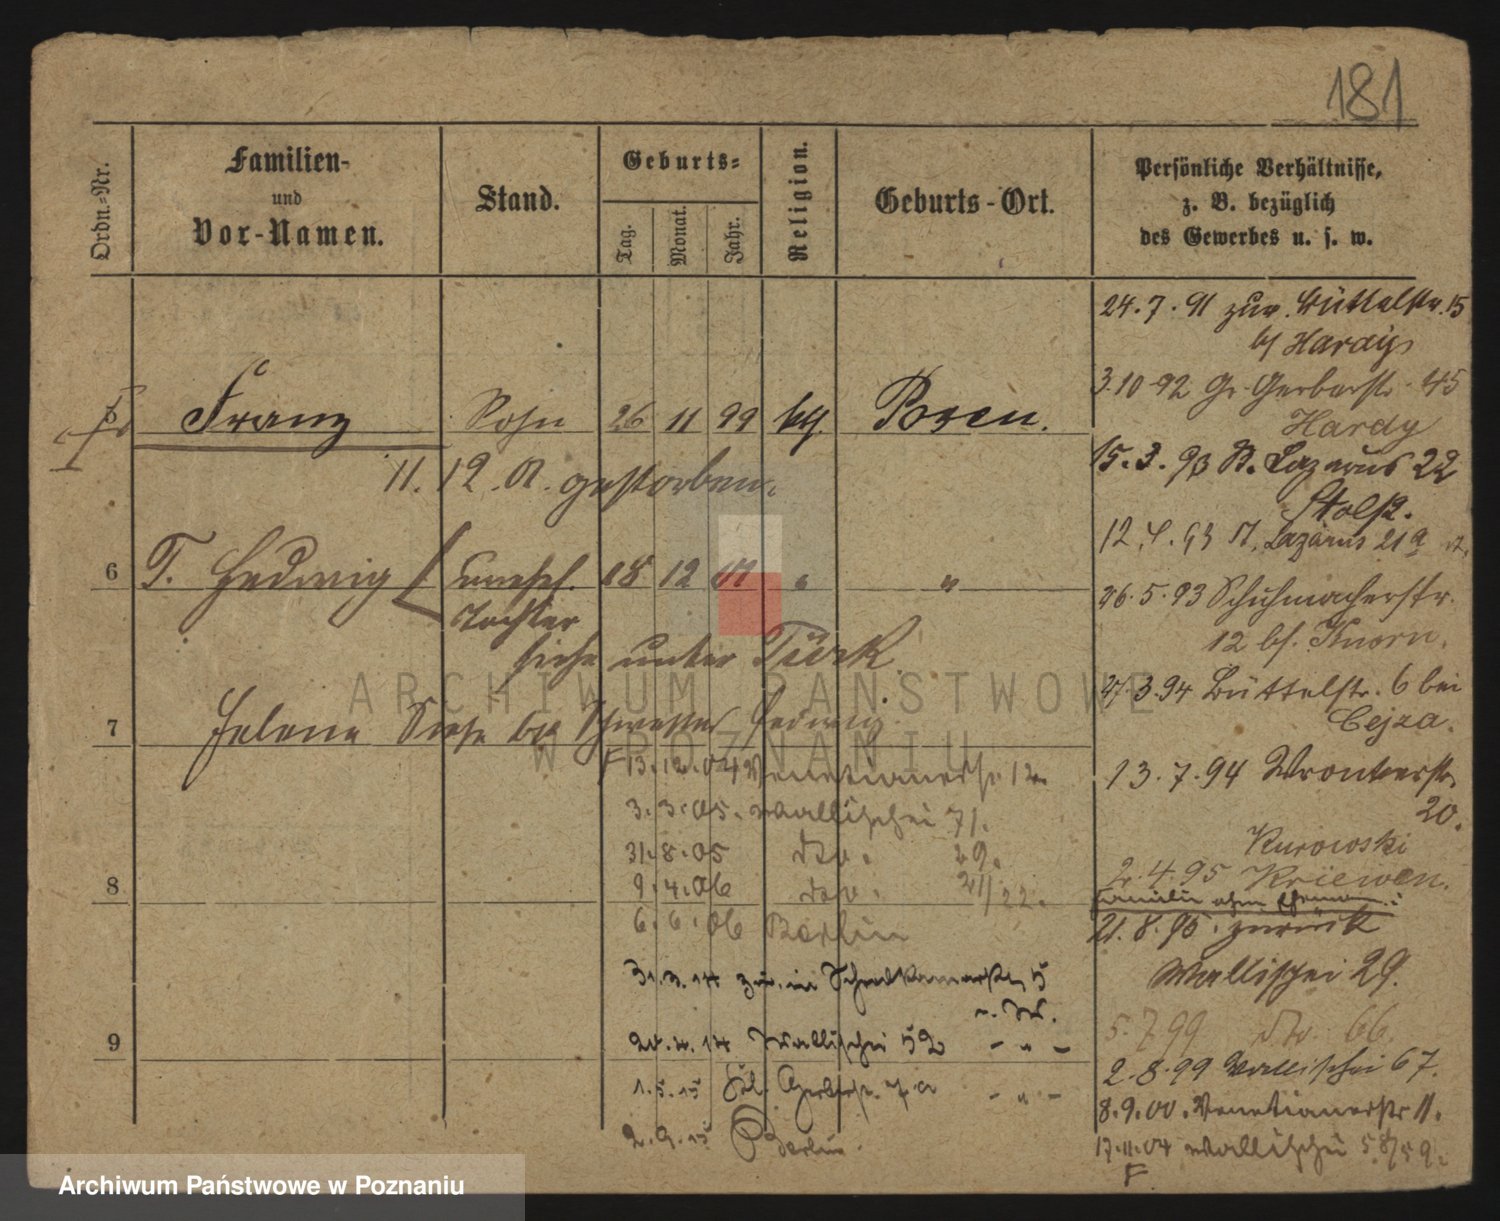 181
Ordn.-Nr.
Familien-
und
Vor-Namen.
Stand.
Geburts-
Tag.
Monat.
Jahr.
Religion.
Geburts-Ort.
Persönliche Verhältnisse,
z. B. bezüglich
des Gewerbes u. s. w.
Franz Sohn 26 11 99 kth. Posen.
11. 12. 01. gestorben.
6 T. Hedwig unehel. 18 12 01 " "
Tochter
siehe unter Türk.
7 Helene Siehe bei Schwester Hedwig.
13.12.04 Venetianerstr. 12
3.3.05. Wallischei 71.
31.8.05 do. 29.
8
9.4.06 do. 21/22.
6.6.06 Berlin
zur. in 5
9
Wallischei 52 - " -
1.5.15 Gerberstr. 7a - " -
2.9.15 Berlin.
24.7.91 zur. Büttelstr. 15
bei Hardy
3.10.92 Gr. Gerberstr. 45
Hardy
15.3.93 St. Lazarus 22
12.4.93 St. Lazarus 21a
26.5.93 Schuhmacherstr.
12 bei Knorn.
27.3.94 Büttelstr. 6 bei
Cejza.
13.7.94 Wronkerstr.
20.
Kurowski
2.4.95 Kriewen.
Familie ohne Ehemann
21.8.95. zurück
Wallischei 29.
5.7.99 do. 66.
2.8.99 Wallischei 67.
8.9.00. Venetianerstr 11.
17.11.04 Wallischei 58/59.
F
ARCHIWUM PAŃSTWOWE
W POZNANIU
Archiwum Państwowe w Poznaniu